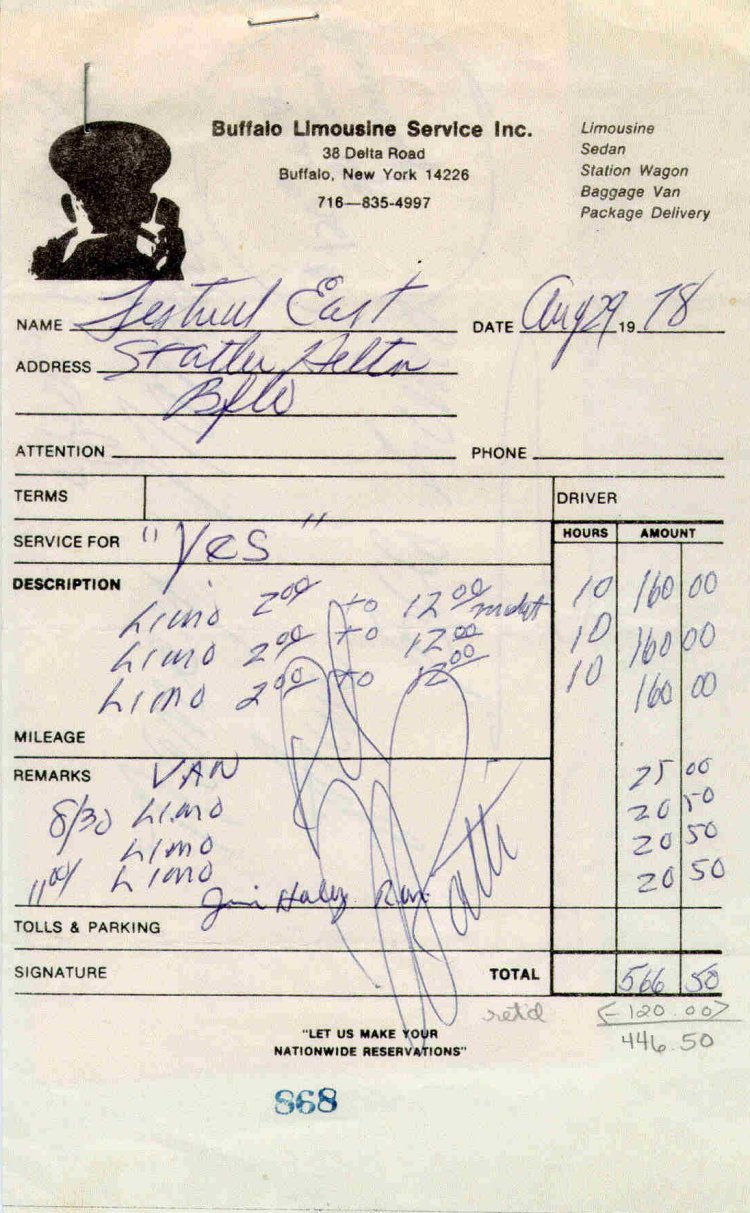 Buffalo Limousine Service Inc.
38 Delta Road
Buffalo, New York 14226
716—835-4997
Limousine
Sedan
Station Wagon
Baggage Van
Package Delivery
NAME Festival East DATE Aug 29 19 78
ADDRESS Statler Hilton
Bflo
ATTENTION PHONE
TERMS DRIVER
SERVICE FOR "Yes" HOURS AMOUNT
DESCRIPTION
Limo 2 00 to 12 00 10 160 00
Limo 2 00 to 12 00 10 160 00
Limo 2 00 to 12 00 10 160 00
MILEAGE
REMARKS VAN 25 00
8/30 Limo 20 50
Limo 20 50
11 00 Limo 20 50
Jim Haley
TOLLS & PARKING
SIGNATURE TOTAL 566 50
ret'd <-120.00>
446.50
"LET US MAKE YOUR
NATIONWIDE RESERVATIONS"
868